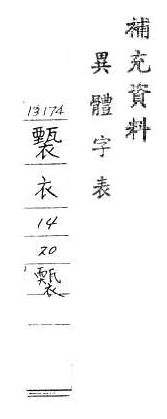 補充資料
異體字表
13174
衣
14
20